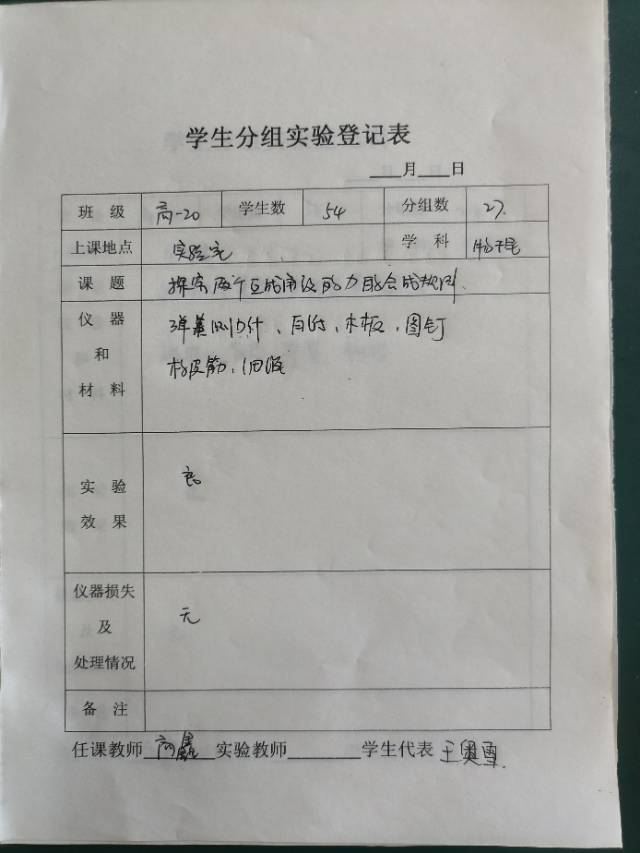 学生分组实验登记表
___月___日
班 级 高一20 学生数 54 分组数 27.
上课地点 实验室 学 科 物理
课 题 探究两个互成角度的力的合成规则.
仪 器 弹簧测力计、白纸、木板、图钉
和 橡皮筋、细绳
材 料
实 验 良
效 果
仪器损失
及 无
处理情况
备 注
任课教师 实验教师______学生代表 王奥雪.